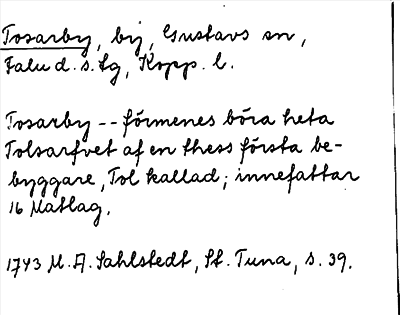 Tosarby, by, Gustavs sn,
Falu d. s. lg, Kopp. l.
Tosarby -- förmenes böra heta
Tolsarfvet af en thess första be-
byggare, Tol kallad; innefattar
16 Matlag.
1743 M. A. Sahlstedt, St. Tuna, s. 39.